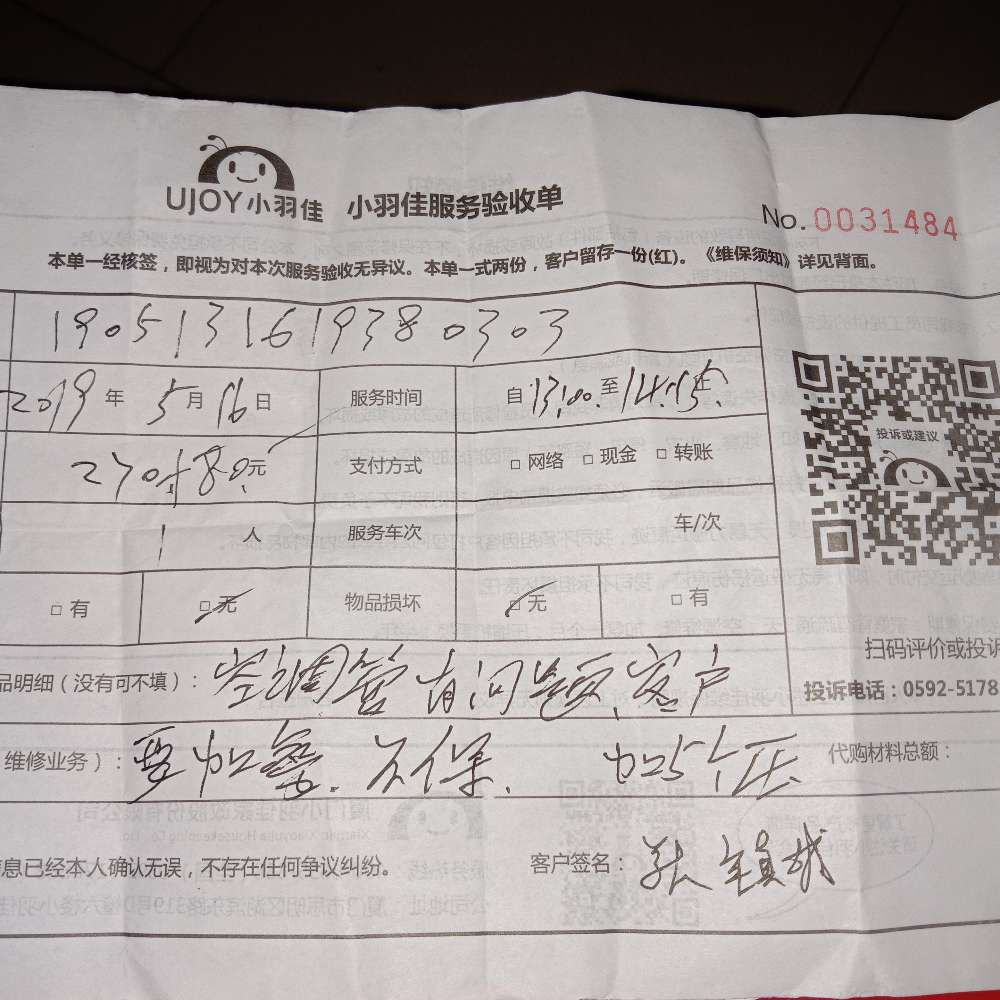 UJOY小羽佳 小羽佳服务验收单
No.0031484
本单一经核签，即视为对本次服务验收无异议。本单一式两份，客户留存一份(红)。《维保须知》详见背面。
190513161938 0303
2019 年 5 月 16 日 服务时间 自 13:00 至 14:55
270+80元 支付方式 □ 网络 □ 现金 □ 转账
投诉或建议
1 人 服务车次 车/次
□ 有 □ 无 物品损坏 □ 无 □ 有
扫码评价或投诉
品明细（没有可不填）：空调管有问题、客户
投诉电话：0592-5178
维修业务）：要加氟.不保. 加5个压
代购材料总额：
信息已经本人确认无误，不存在任何争议纠纷。 客户签名：张镇城